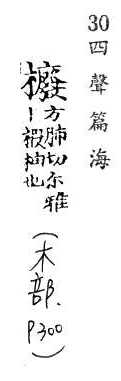 30四聲篇海
櫠方肺切尔雅
丨椵柚也
(木部. P300)